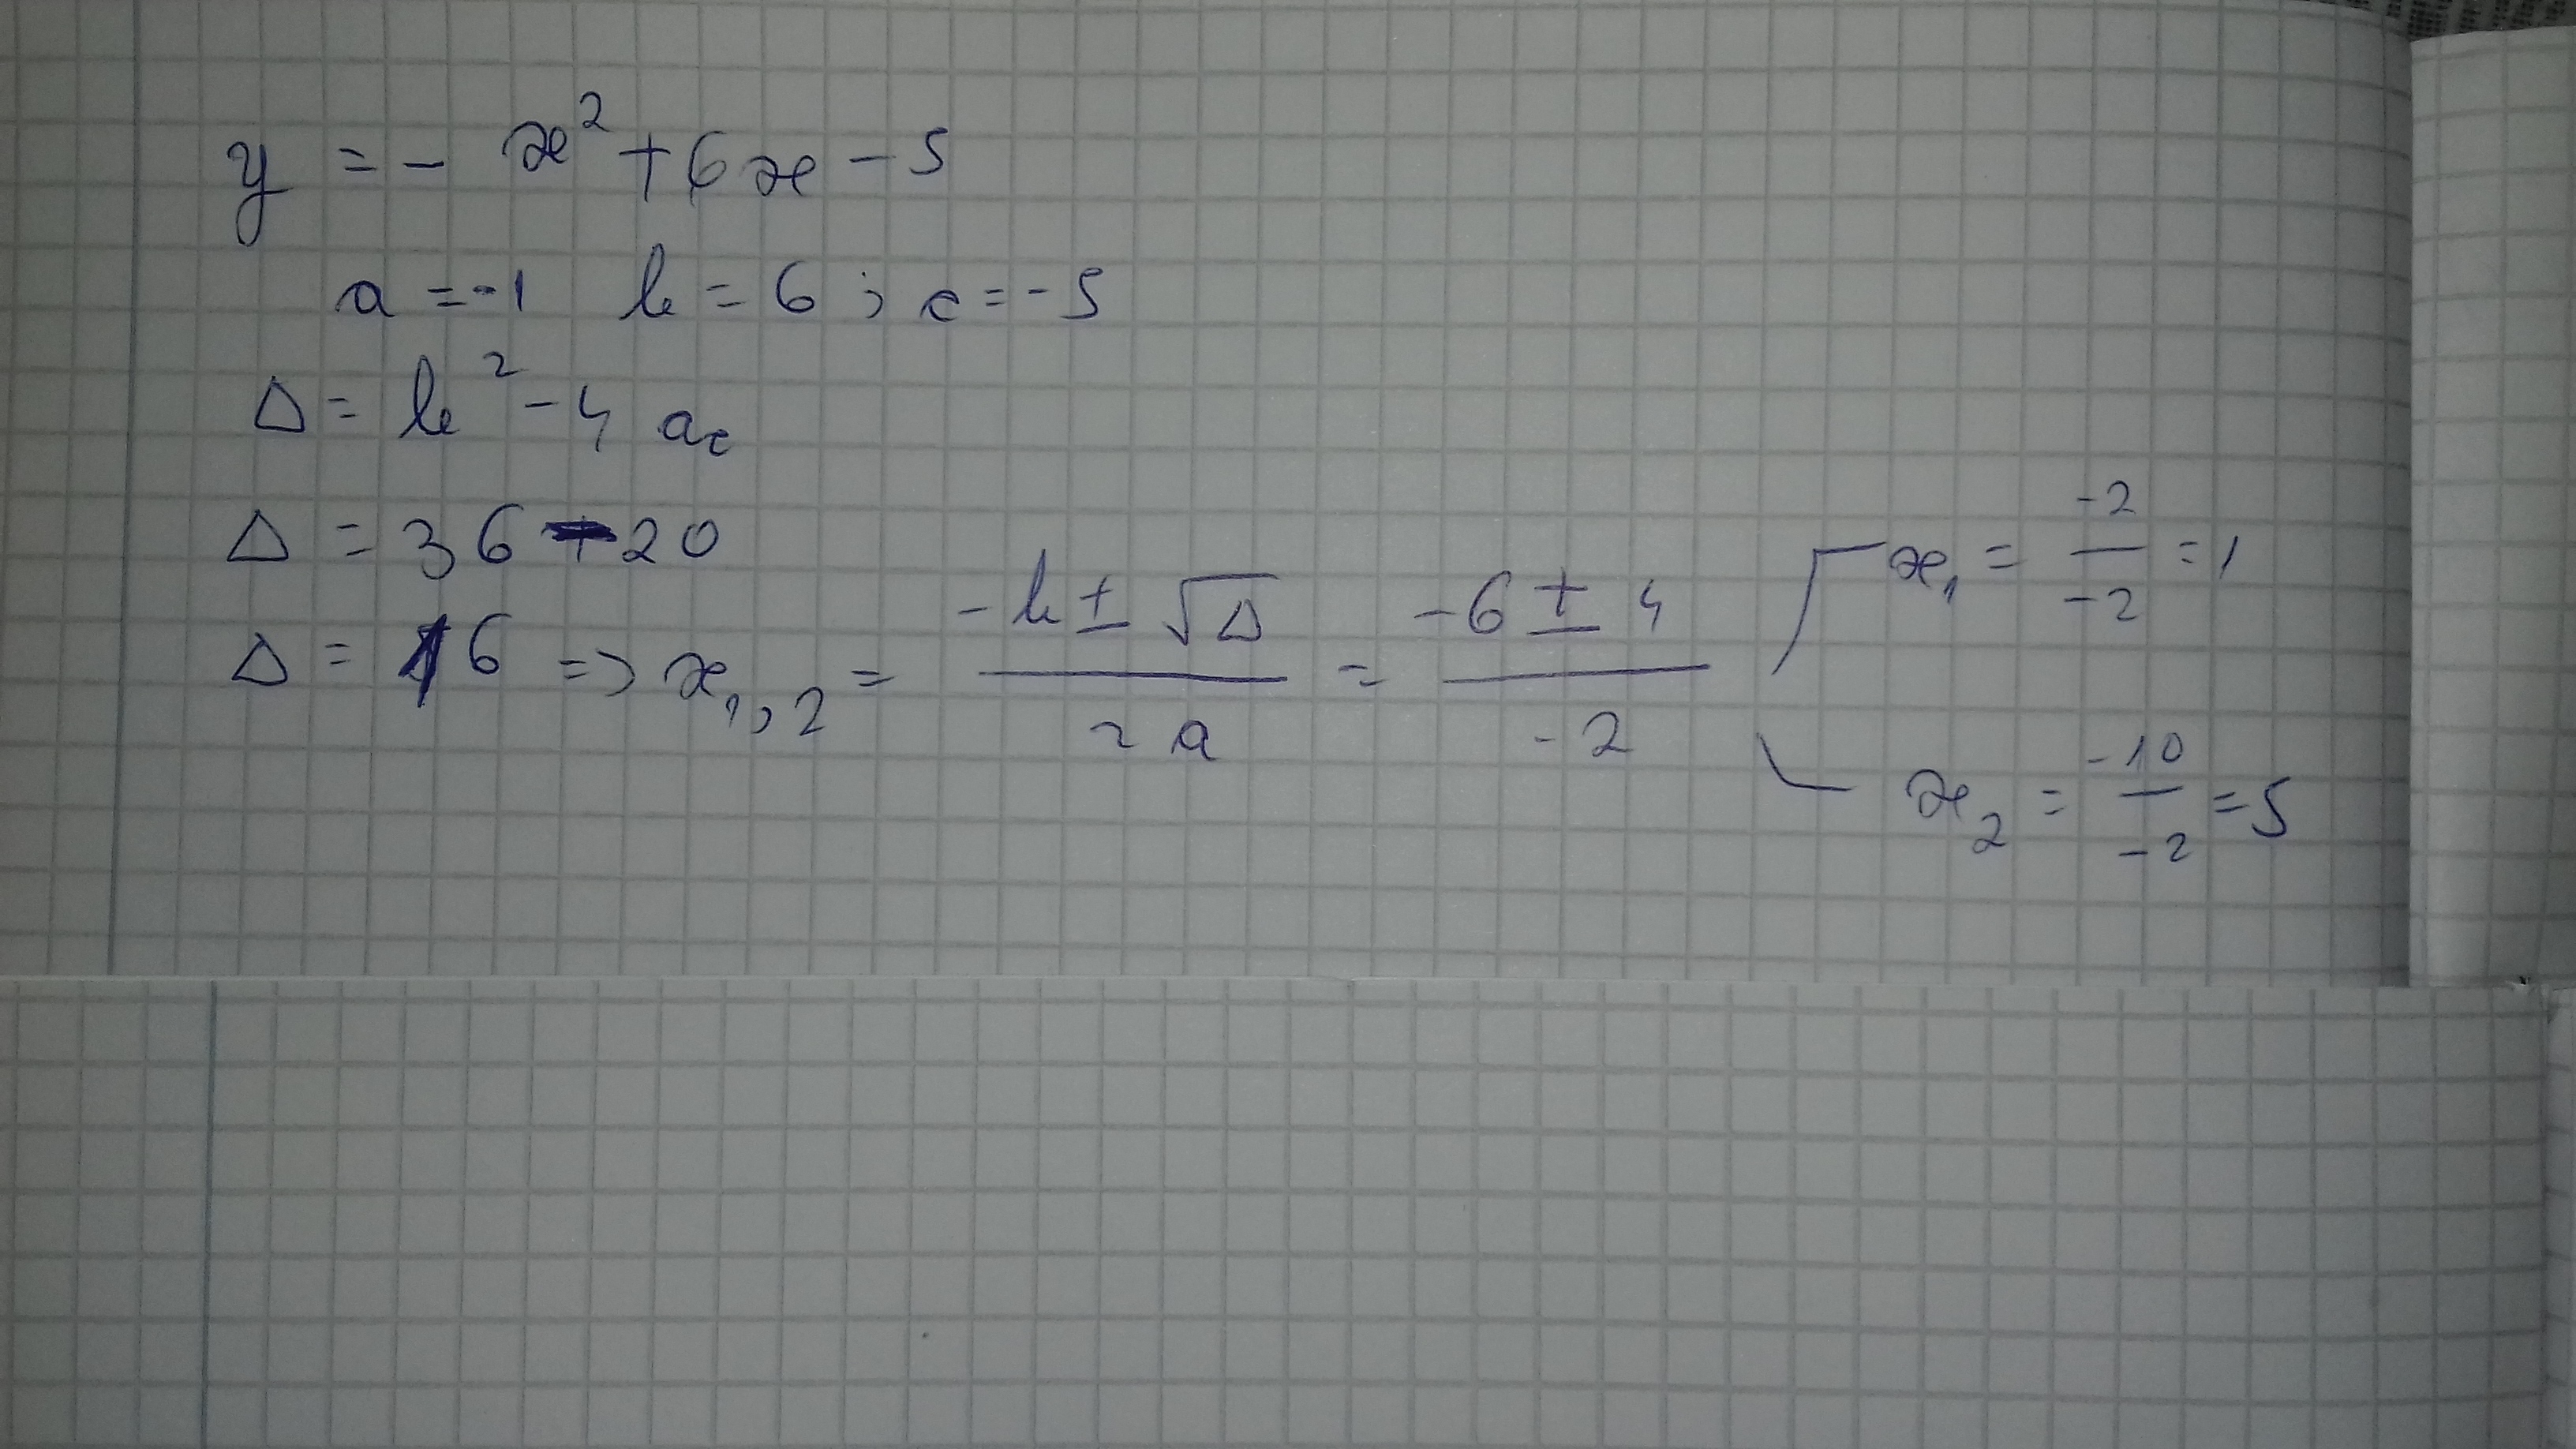 y = - x² + 6x - 5
a = -1 b = 6 ; c = -5
Δ = b² - 4 ac
Δ = 36 - 20
Δ = 16 => x₁,₂ = (-b ± √Δ) / (2a) = (-6 ± 4) / (-2)
x₁ = -2 / -2 = 1
x₂ = -10 / -2 = 5